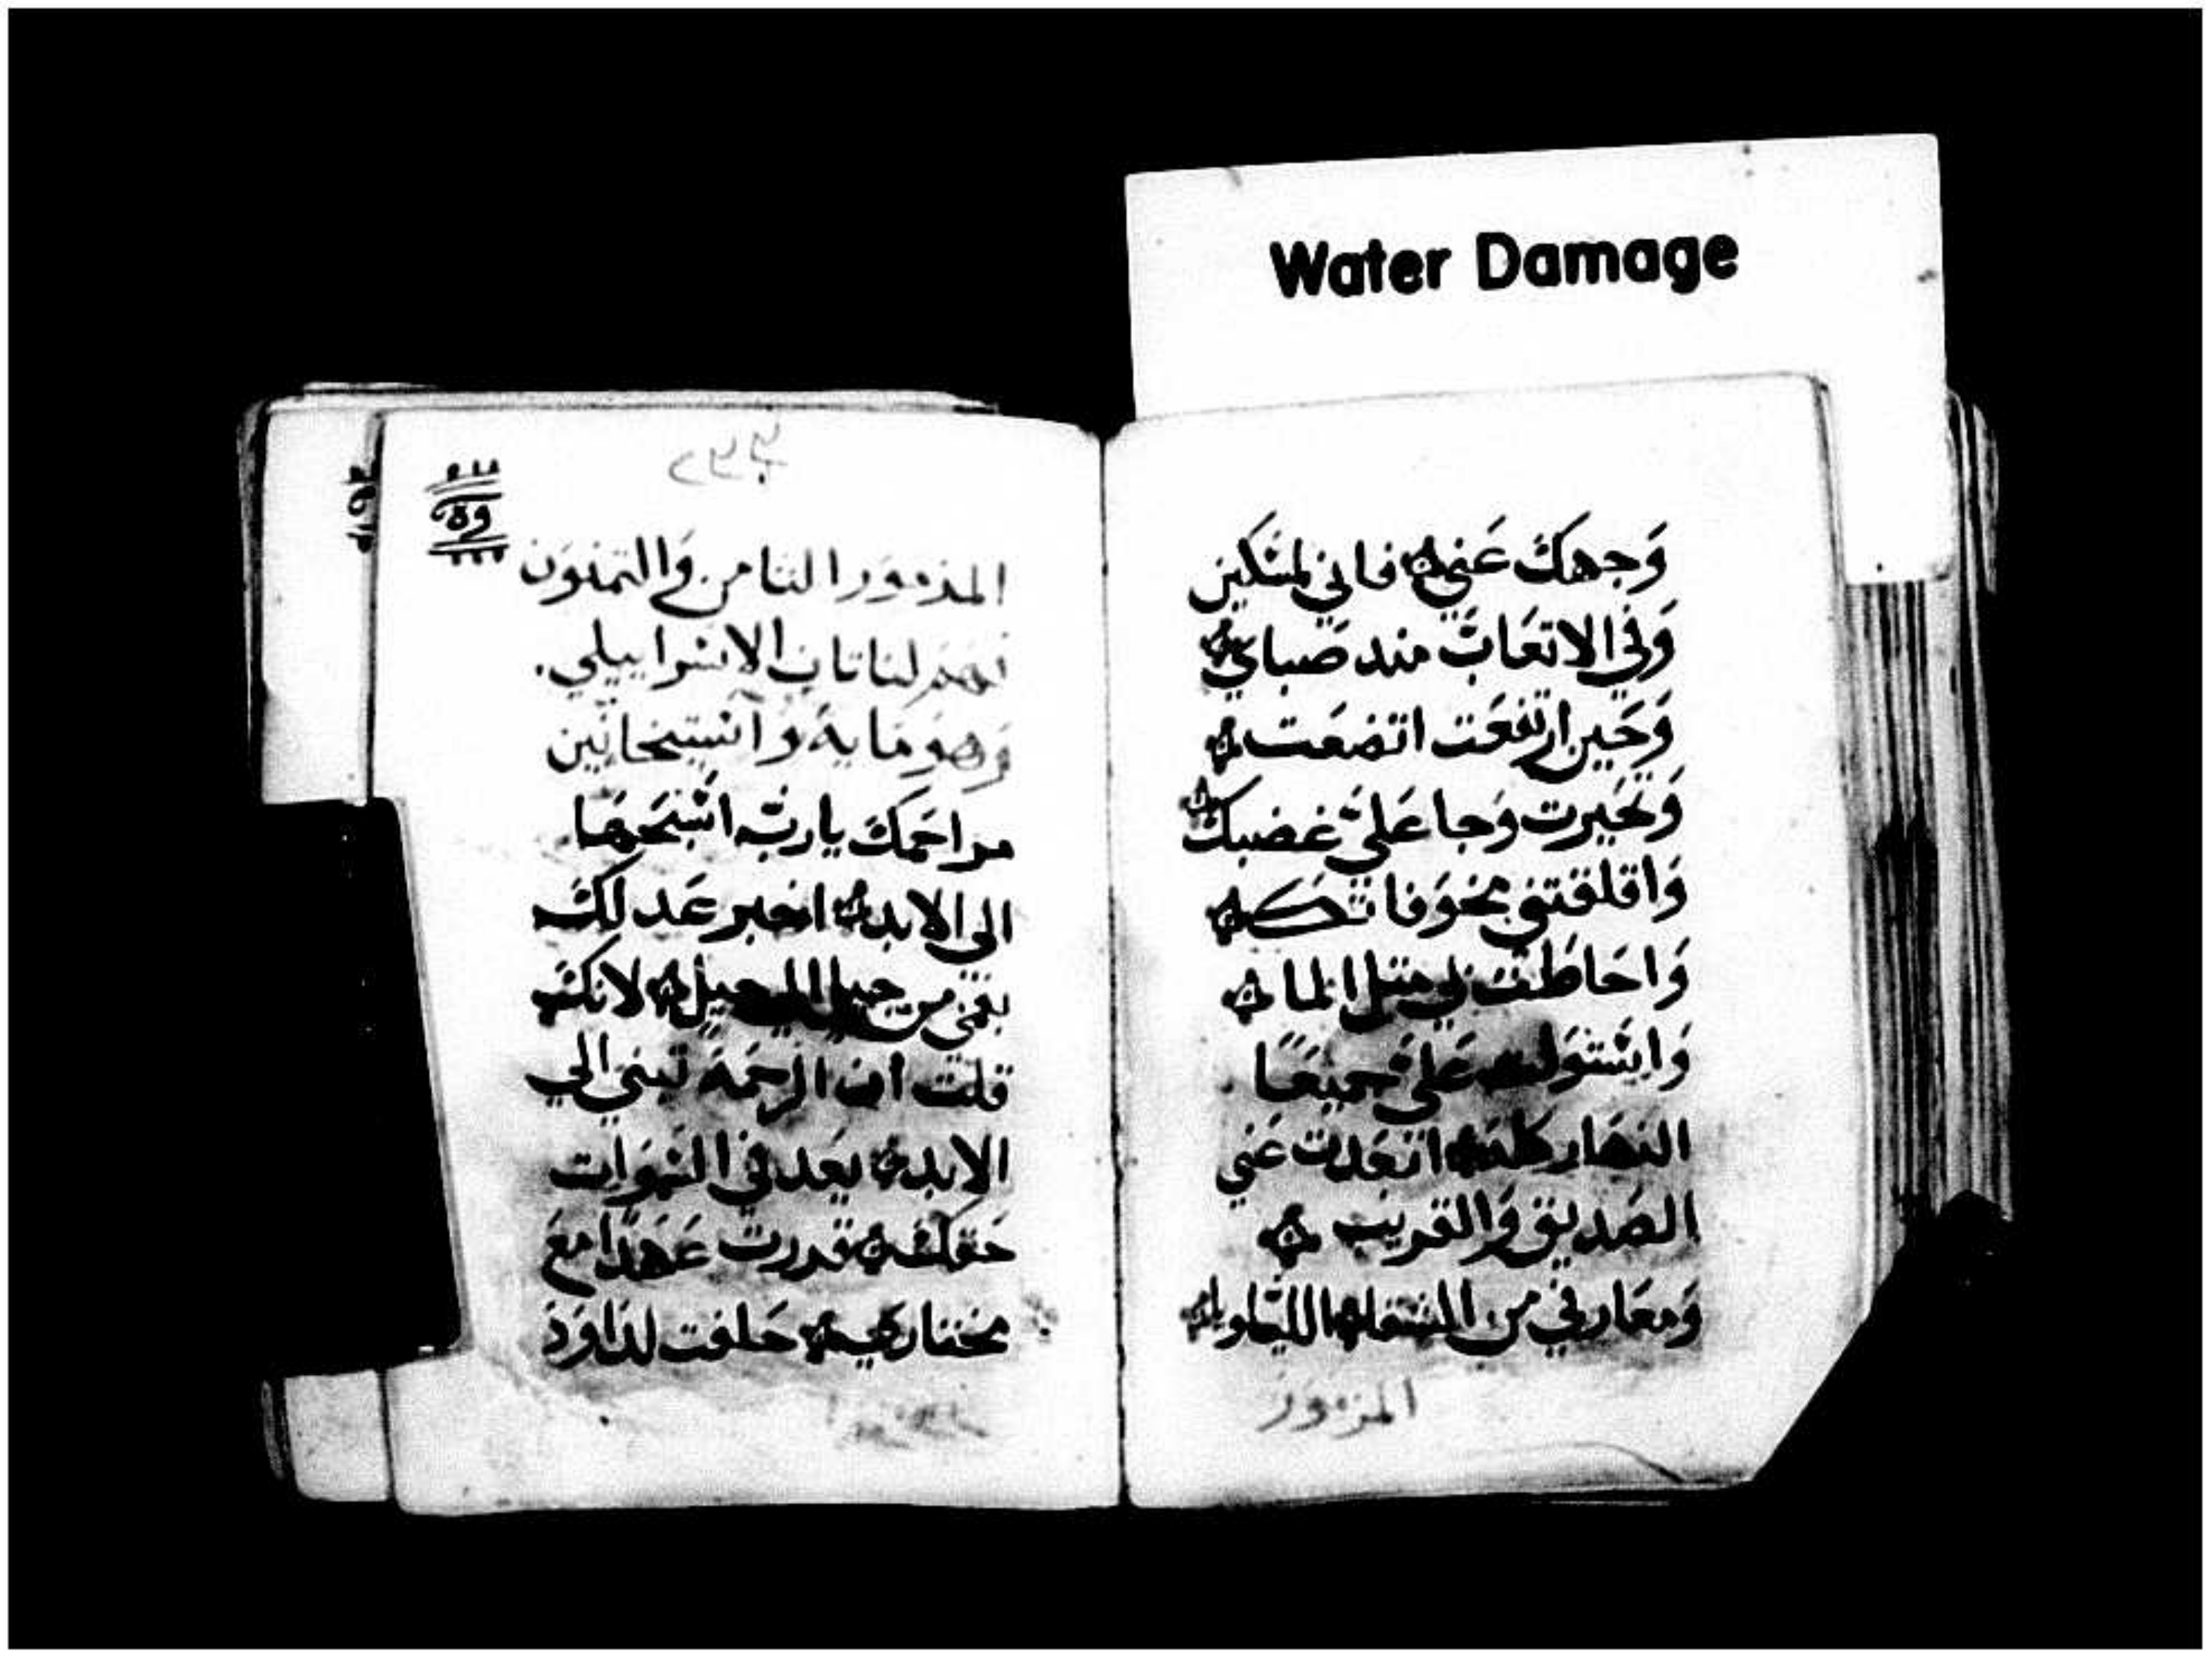 Water Damage
وَجهكَ عَني فاني لمسَكين
وَفي الاتعَابَ مند صَباي
وَحَين ارتفعَت اتضعَت
وَتحَيرت وَجا عَليَّ غضبكَ
وَاقلقتني مخوَفاتكَ
وَاحَاطَت بي متل الما
وَاستوَلت عَليَّ جميعًا
النهَار كله ابتعَدت عَني
الصَديق وَالقريب
وَمعَارفي من الشقا الليلويا
المزموَر
المزموَر التامن وَالتمنوَن
لناتان الاسراييلي
وَهوَ مَايةَ وَاستيخانين
مراحَمكَ يارب اسَبحَهَا
الي الابد اخبر عَدلكَ
بفمي من جيل الي جيل لانكَ
قلت ان الرحمَةَ تبني الي
الابد يعَد في السموَات
حَقكَ قررت عَهدًا مع
مختاري حَلفت لدَاوَد